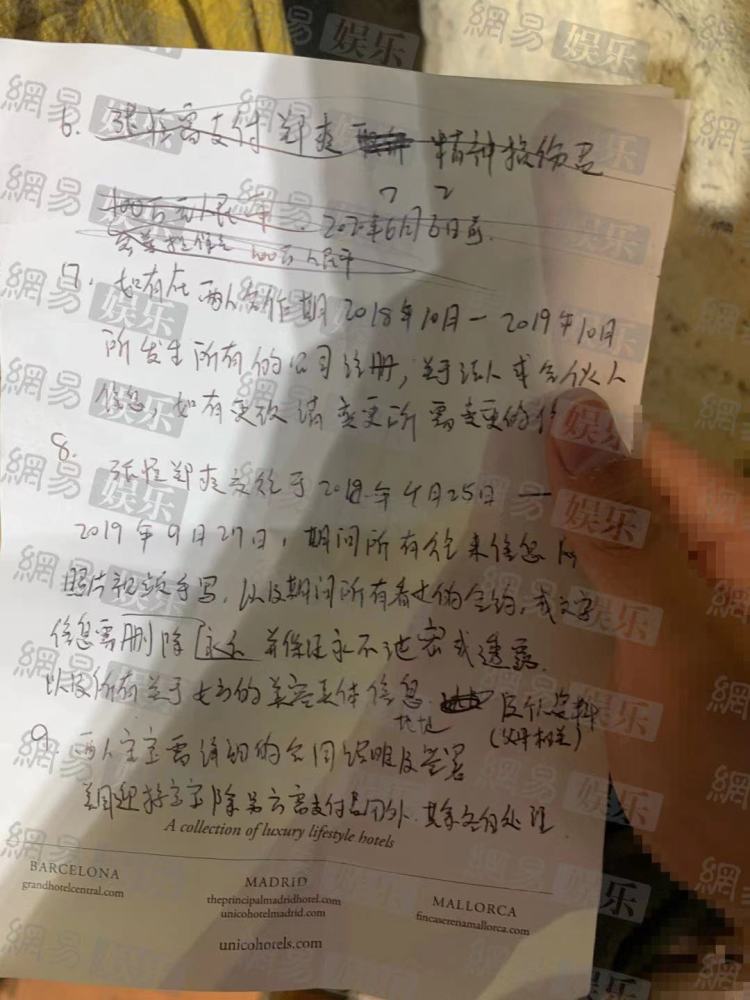 6. 张恒需支付郑爽 精神损伤君
7 2
100万元人民币. 2020年6月6日前.
100万人民币
7. 如有在两人合作期2018年10月—2019年10月
所发生所有的公司注册,关于法人或合伙人
信息,如有更改请变更所需变更的
8.
张恒郑爽交往于2018年4月25日—
2019年9月27日,期间所有往来信息及
照片视频手写,以及期间所有者的合约,或文字
信息需删除 永不 并保证永不泄密或透露.
以及所有关于女方的美容具体信息. 医院资料
地址 (父母相关)
9. 两人宝宝需详细的合同说明及签署
美国迎接宝宝除男方需支付费用外.其余各自处理
A collection of luxury lifestyle hotels
BARCELONA
grandhotelcentral.com
MADRID
theprincipalmadridhotel.com
unicohotelmadrid.com
MALLORCA
fincaserenamallorca.com
unicohotels.com
網易 娱乐